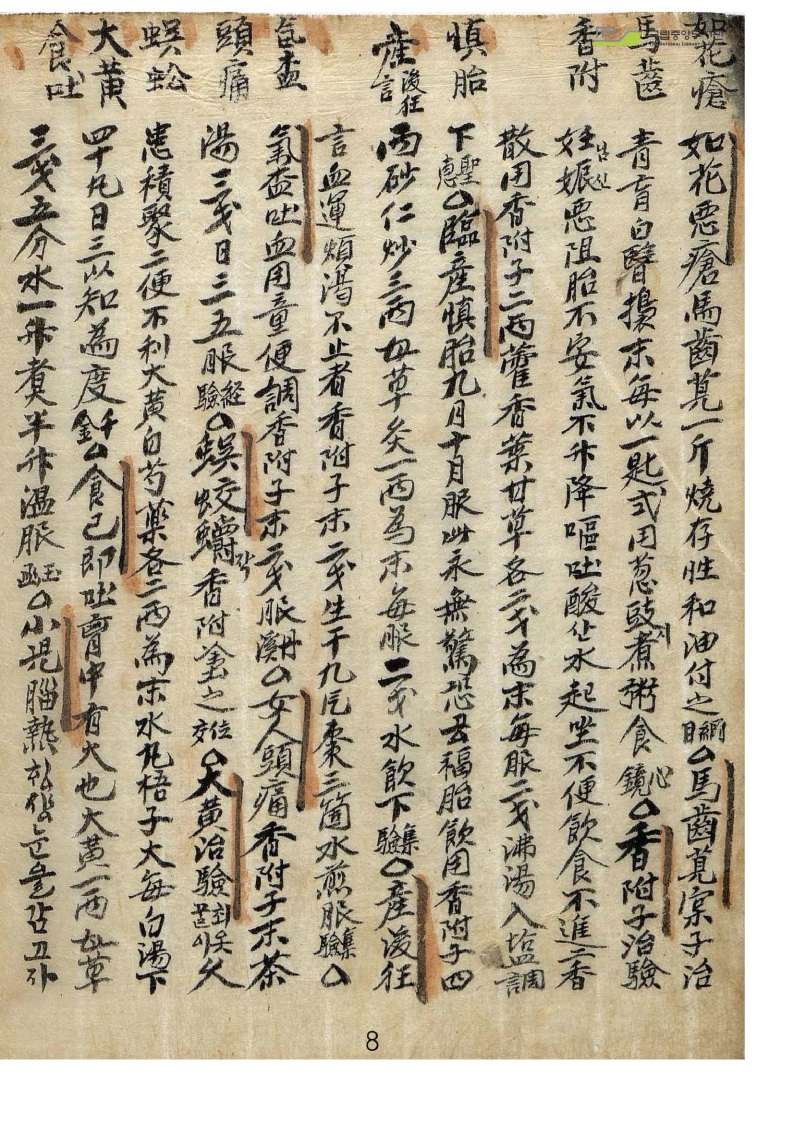 如花瘡
馬齒
香附
慎胎
産後狂言
氣盃
頭痛
蜈蚣
大黃
食吐
如花惡瘡馬齒莧一斤燒存性和油付之綱目○馬齒莧實子治
青盲白瞖擣末每以一匙式用葱豉지煮粥食心鏡○香附子治驗
妊娠임신惡阻胎不安氣不升降嘔吐酸水起坐不便飮食不進二香
散用香附子二両藿香葉甘草各二戔為末每服二戔沸湯入塩調
下聖惠○臨産慎胎九月十月服此永無驚恐去福胎飮用香附子四
両砂仁炒三両甘草灸一両為末每服二戔水飮下集驗○産後狂
言血運煩渴不止者香附子末二戔生干九棗三箇水煎服集驗○
氣盃吐血用童便調香附子末二戔服○女人頭痛香附子末茶
湯三戔日三五服経驗○蜈蚣각香附塗之○大黃治驗久
患積聚二便不利大黃白芍藥各二両為末水丸梧子大每白湯下
四十丸日三以知為度千金○食已即吐胷中有火也大黃一両甘草
三戔五分水一升煑半升温服○小児腦熱항상눈을감고자
8